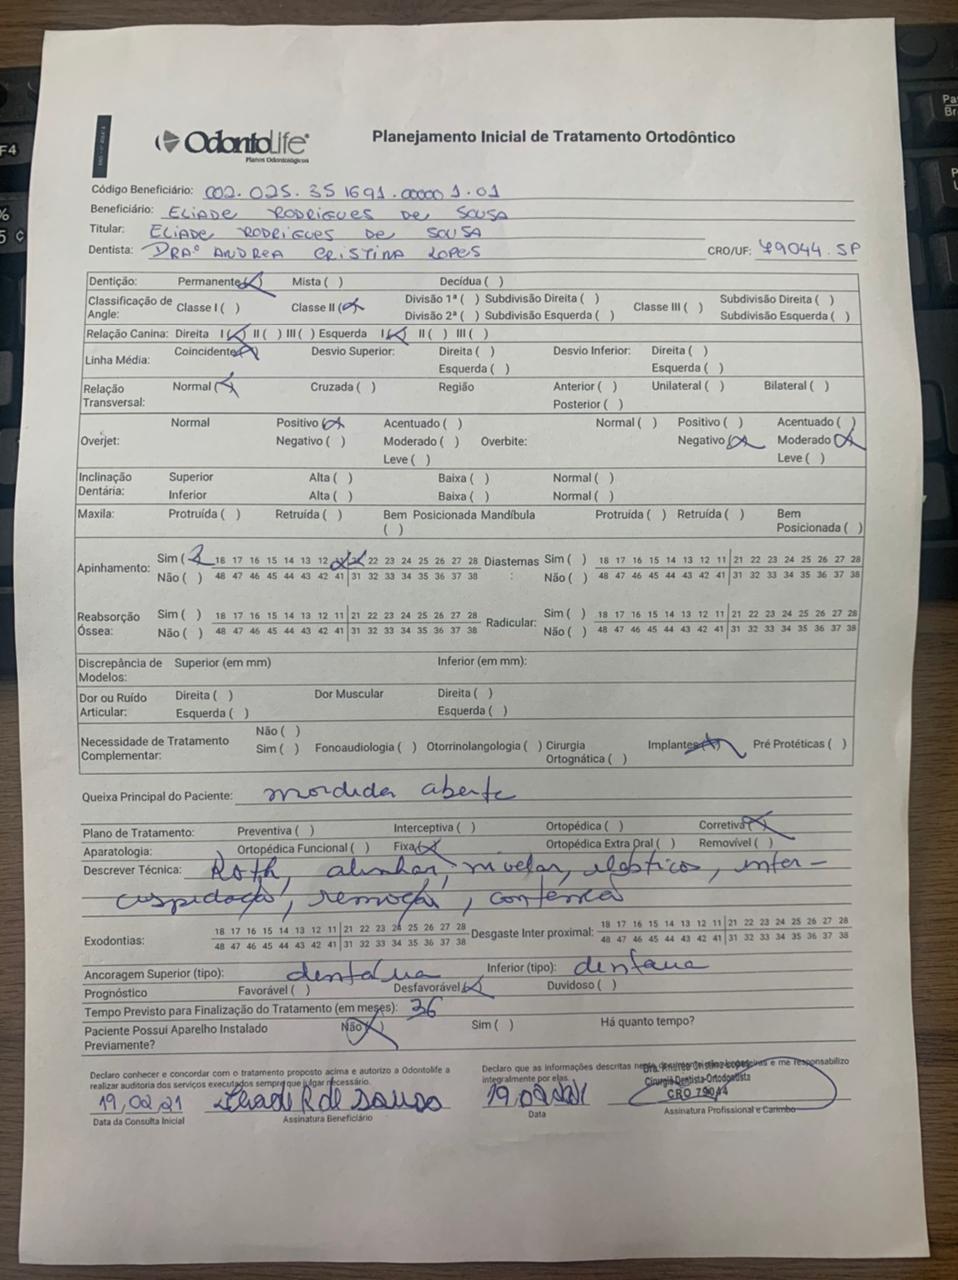 OdontoLife
Planos Odontológicos
Planejamento Inicial de Tratamento Ortodôntico
Código Beneficiário: 002.025.351691.00000 1.01
Beneficiário: ELIADE RODRIGUES DE SOUSA
Titular: ELIADE RODRIGUES DE SOUSA
Dentista: DRAª ANDREA CRISTINA LOPES CRO/UF: 79044.SP
Dentição: Permanente (X) Mista ( ) Decídua ( )
Classificação de Angle: Classe I ( ) Classe II (X) Divisão 1ª ( ) Subdivisão Direita ( ) Classe III ( ) Subdivisão Direita ( )
Divisão 2ª ( ) Subdivisão Esquerda ( ) Subdivisão Esquerda ( )
Relação Canina: Direita I (X) II ( ) III ( ) Esquerda I (X) II ( ) III ( )
Linha Média: Coincidente (X) Desvio Superior: Direita ( ) Desvio Inferior: Direita ( )
Esquerda ( ) Esquerda ( )
Relação Transversal: Normal (X) Cruzada ( ) Região Anterior ( ) Unilateral ( ) Bilateral ( )
Posterior ( )
Overjet: Normal Positivo (X) Acentuado ( ) Overbite: Normal ( ) Positivo ( ) Acentuado ( )
Negativo ( ) Moderado ( ) Negativo (X) Moderado (X)
Leve ( ) Leve ( )
Inclinação Dentária: Superior Alta ( ) Baixa ( ) Normal ( )
Inferior Alta ( ) Baixa ( ) Normal ( )
Maxila: Protruída ( ) Retruída ( ) Bem Posicionada ( ) Mandíbula Protruída ( ) Retruída ( ) Bem Posicionada ( )
Apinhamento: Sim (X) 18 17 16 15 14 13 12 22 23 24 25 26 27 28 Diastemas: Sim ( ) 18 17 16 15 14 13 12 11 21 22 23 24 25 26 27 28
Não ( ) 48 47 46 45 44 43 42 41 31 32 33 34 35 36 37 38 Não ( ) 48 47 46 45 44 43 42 41 31 32 33 34 35 36 37 38
Reabsorção Óssea: Sim ( ) 18 17 16 15 14 13 12 11 21 22 23 24 25 26 27 28 Radicular: Sim ( ) 18 17 16 15 14 13 12 11 21 22 23 24 25 26 27 28
Não ( ) 48 47 46 45 44 43 42 41 31 32 33 34 35 36 37 38 Não ( ) 48 47 46 45 44 43 42 41 31 32 33 34 35 36 37 38
Discrepância de Modelos: Superior (em mm) Inferior (em mm):
Dor ou Ruído Articular: Direita ( ) Dor Muscular Direita ( )
Esquerda ( ) Esquerda ( )
Necessidade de Tratamento Complementar: Não ( )
Sim ( ) Fonoaudiologia ( ) Otorrinolangologia ( ) Cirurgia Ortognática ( ) Implantes (X) Pré Protéticas ( )
Queixa Principal do Paciente: mordida aberta
Plano de Tratamento: Preventiva ( ) Interceptiva ( ) Ortopédica ( ) Corretiva (X)
Aparatologia: Ortopédica Funcional ( ) Fixa (X) Ortopédica Extra Oral ( ) Removível ( )
Descrever Técnica: Roth, alinhar, nivelar, elásticos, inter-
cuspidação, remoção, contenção
Exodontias: 18 17 16 15 14 13 12 11 21 22 23 24 25 26 27 28 Desgaste Inter proximal: 18 17 16 15 14 13 12 11 21 22 23 24 25 26 27 28
48 47 46 45 44 43 42 41 31 32 33 34 35 36 37 38 48 47 46 45 44 43 42 41 31 32 33 34 35 36 37 38
Ancoragem Superior (tipo): dentária Inferior (tipo): dentária
Prognóstico Favorável ( ) Desfavorável (X) Duvidoso ( )
Tempo Previsto para Finalização do Tratamento (em meses): 36
Paciente Possui Aparelho Instalado Previamente? Não (X) Sim ( ) Há quanto tempo?
Declaro conhecer e concordar com o tratamento proposto acima e autorizo a Odontolife a
realizar auditoria dos serviços executados sempre que julgar necessário.
Declaro que as informações descritas e me responsabilizo
integralmente por elas.
Dra. Andrea Cristina Lopes
Cirurgiã Dentista-Ortodontista
CRO 79044
19,02,21 Eliade R de Sousa 19,02,21
Data da Consulta Inicial Assinatura Beneficiário Data Assinatura Profissional e Carimbo
F4
5 ¢
%